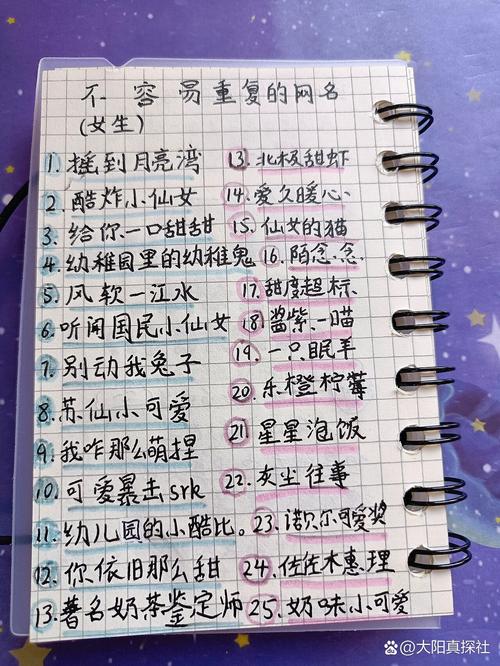 不容易重复的网名
(女生)
1. 摇到月亮湾
2. 酷炸小仙女
3. 给你一口甜甜
4. 幼稚园里的幼稚鬼
5. 风软一江水
6. 听闻国民小仙女
7. 别动我兔子
8. 苏仙小可爱
9. 我咋那么萌捏
10. 可爱暴击srk
11. 幼儿园的小酷比。
12. 你依旧那么甜
13. 著名奶茶鉴定师
13. 北极甜虾
14. 爱久暖心
15. 仙女的猫
16. 陌念念
17. 甜度超标
18. 酱紫一喵
19. 一只眠羊
20. 乐橙柠莓
21 星星泡饭
22. 灰尘往事
23. 诺贝尔可爱奖
24. 佐佐木惠理
25. 奶味小可爱
大阳真探社